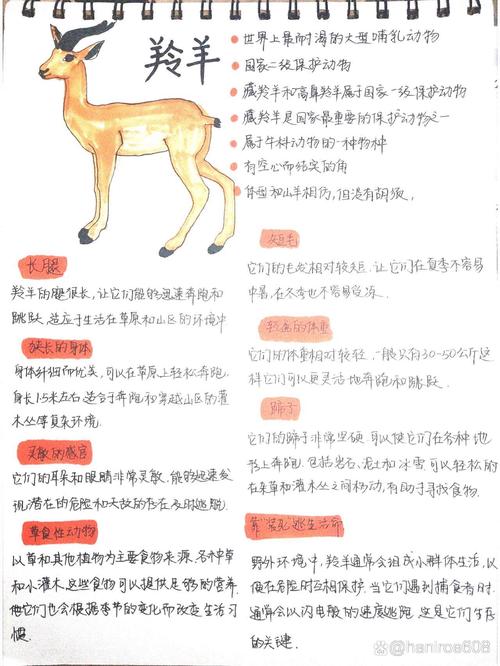 羚羊
世界上最耐渴的大型哺乳动物
国家二级保护动物
藏羚羊和高鼻羚羊属于国家一级保护动物
藏羚羊是国家最重要的保护动物之一
属于牛科动物的一种物种
有空心而结实的角
体型和山羊相仿，但没有胡须。
长腿
羚羊的腿很长，让它们能够迅速奔跑和
跳跃，适应于生活在草原和山区的环境中
狭长的身体
身体纤细而优美，可以在草原上轻松奔跑。
身长1.5米左右，适合于奔跑和穿越山区的灌
木丛等复杂环境.
灵敏的感官
它们的耳朵和眼睛非常灵敏，能够迅速发
现潜在的危险和天敌的存在及时逃脱.
草食性动物
以草和其他植物为主要食物来源，各种草
和小灌木，这些食物可以提供足够的营养.
他它们也会根据季节的变化而改变生活习
惯.
短毛
它们的毛发相对较短，让它们在夏季不容易
中暑，在冬季也不容易受冻.
轻盈的体重
它们的体重相对较轻，一般只有30-50公斤这
样它们可以更灵活地奔跑和跳跃.
蹄子
它们的蹄子非常坚硬，可以使它们在各种地
形上奔跑，包括岩石、泥土和冰雪，可以轻松的
在草和灌木丛之间移动，有助于寻找食物.
逃生活命
野外环境中，羚羊通常会组成小群体生活，以
便在危险时互相保护，当它们遇到捕食者时.
通常会以闪电般的速度逃跑，这是它们生存
的关键.
@haniroa608